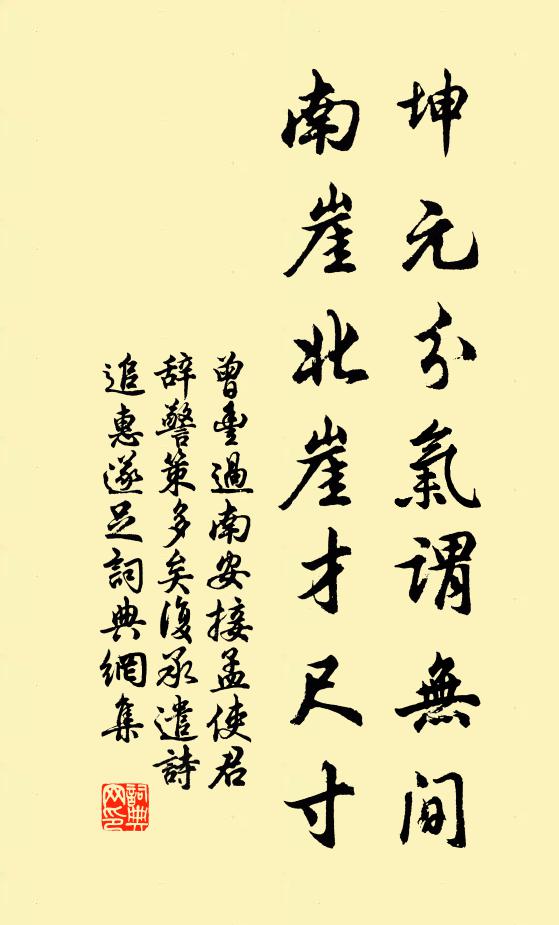 坤元分氣謂無间
南崖北崖才尺寸
曾豊過南安接孟使君
辞警策多矣復承遣詩
追惠遂足詞典網集
詞典網印